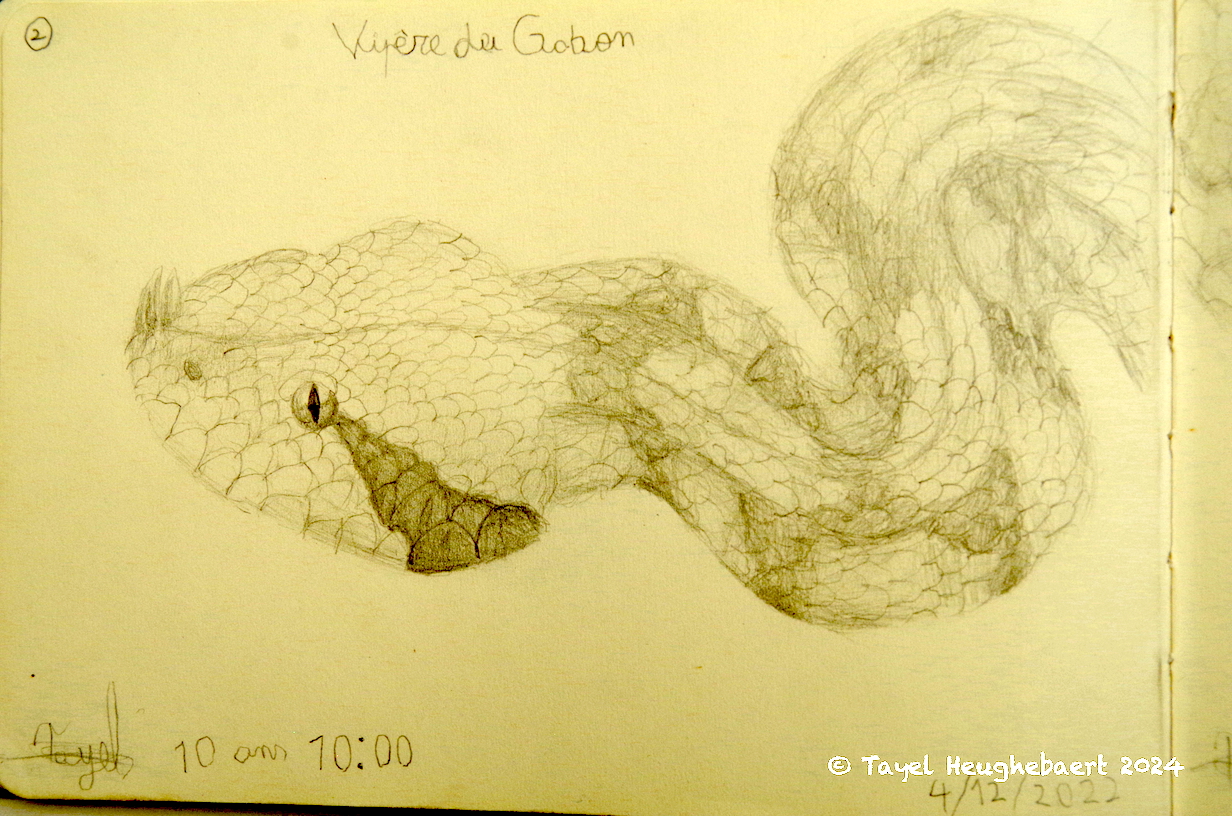 2
Vipère du Gabon
Tayel 10 ans 10:00
© Tayel Heughebaert 2024
4/12/2022